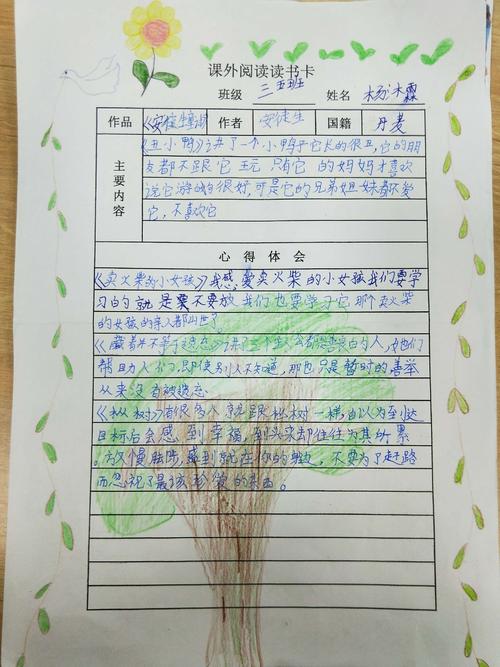 课外阅读读书卡
班级 三五班 姓名 杨沐霖
作品 《安徒生童话 作者 安徒生 国籍 丹麦
主要内容
《丑小鸭》讲了一个小鸭子它长的很丑,它的朋
友都不跟它玩只有它的妈妈才喜欢
说它游的很好,可是它的兄弟姐妹都不爱
它,不喜欢它
心得体会
《卖火柴的小女孩》我感爱卖火柴的小女孩我们要学
习的就是要不要放我们也要学习它那个卖火柴
的女孩的亲人都出世了
《藏着并不等于遗忘》讲了三个
帮助人们,即使别人不知道,那也只是暂时的善举
从来没有被遗忘
《枞树》有很多人就跟枞树一样,由以为到达
目标后会感到幸福,到头来却往往为其所累
放慢脚步,就在你的身边,不要为了赶路
而忽视了最该珍惜的东西。